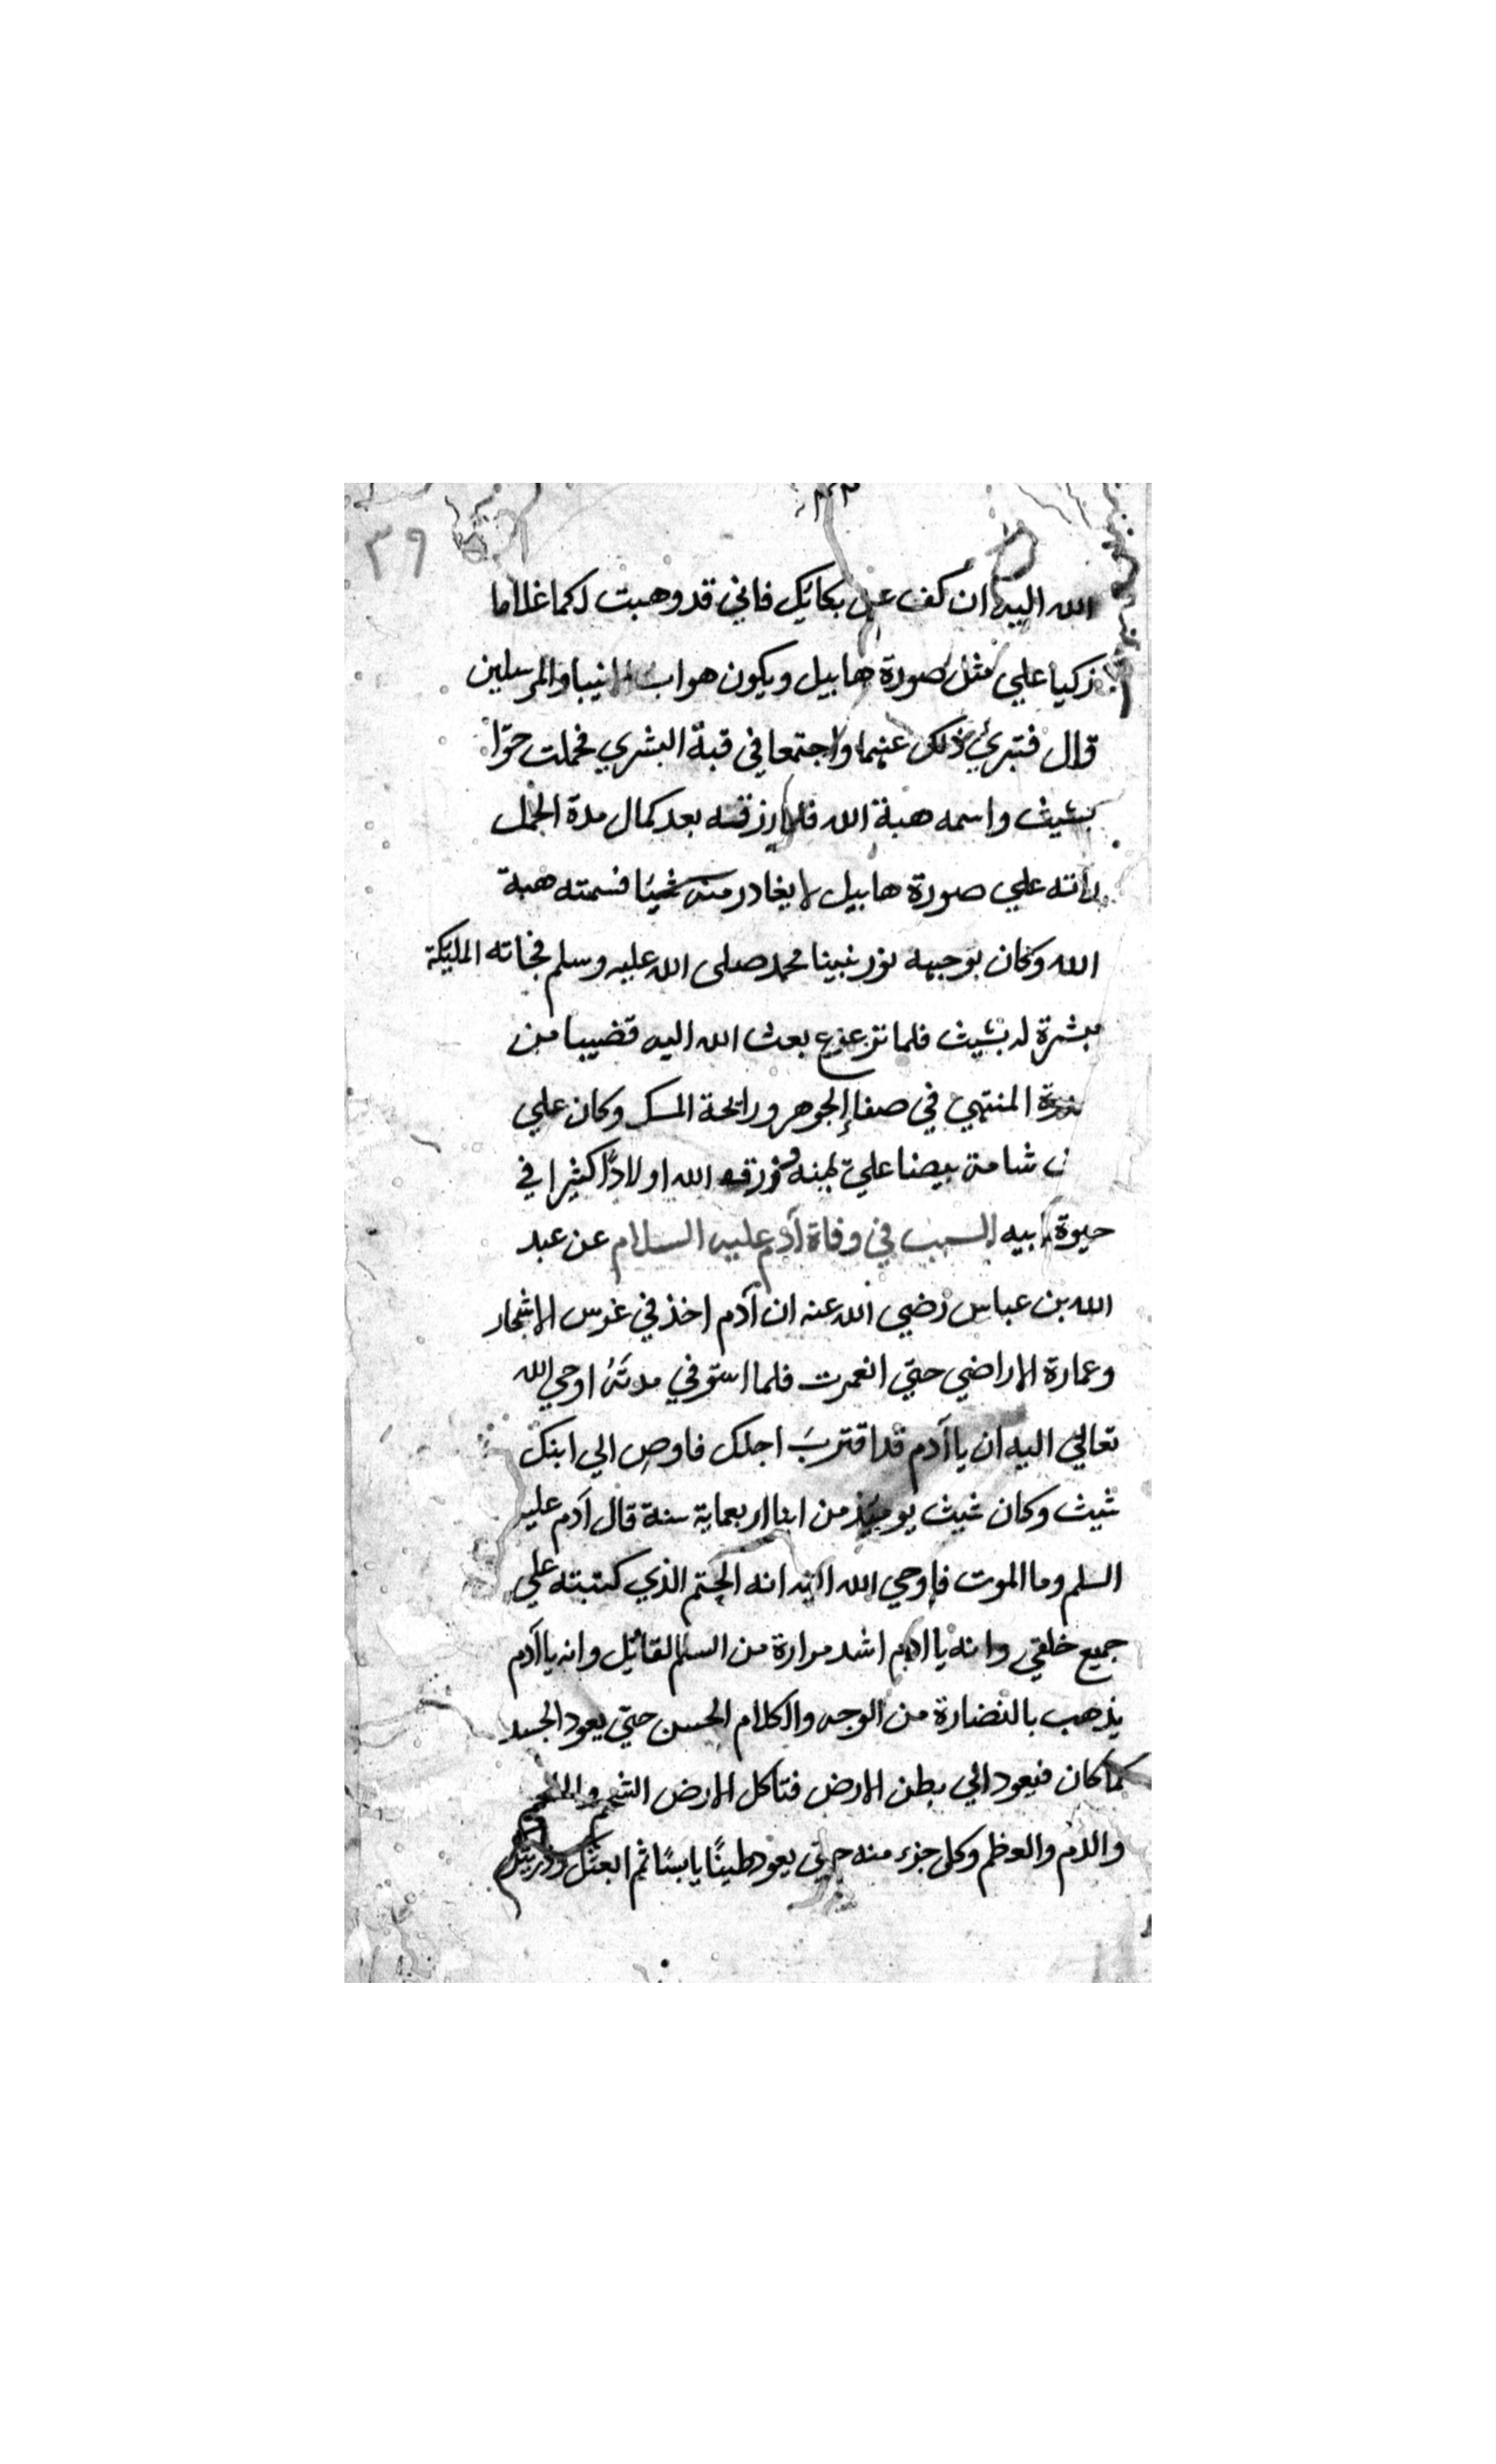 ٣٩
الله اليه ان كف عن بكائك فاني قد وهبت لكما غلاما
زكيا علي مثل صورة هابيل ويكون هو اب الانبيا والمرسلين
قال فتبري ذلك عنهما واجتمعا في قبة البشري فحملت حوّا
بشيث واسمه هبة الله فلما رزقته بعد كمال مدة الحمل
راته علي صورة هابيل لا يغادر منه شيئا فسمته هبة
الله وكان بوجهه نور نبينا محمد صلى الله عليه وسلم فجاته المليكة
مبشرة له بشيث فلما ترعرع بعث الله اليه قضيبا من
سدرة المنتهي في صفا الجوهر ورائحة المسك وكان علي
شامة بيضا علي ورزقه الله اولادًا كثيرا في
حيوة ابيه السبب في وفاة آدم عليه السلام عن عبد
الله بن عباس رضي الله عنه ان آدم اخذ في غرس الاشجار
وعمارة الاراضي حتي انعمرت فلما استوفي مدتهُ اوحي الله
تعالي اليه ان يا آدم قد اقتربَ اجلك فاوص الي ابنك
شيث وكان شيث يوميذ من ابنا اربعماية سنة قال آدم عليه
السلم وما الموت فاوحي الله اليه انه الحتم الذي كتبته علي
جميع خلقي وانه يا ادم اشد مرارة من السم القاتل وانه يا آدم
يذهب بالنضارة من الوجه والكلام الحسن حتي يعود الجسد
كما كان فيعود الي بطن الارض فتاكل الارض الشحم واللحم
والدم والعظم وكل جزء منه حتي يعود طينًا يابسًا ثم ابعثك وذريتك